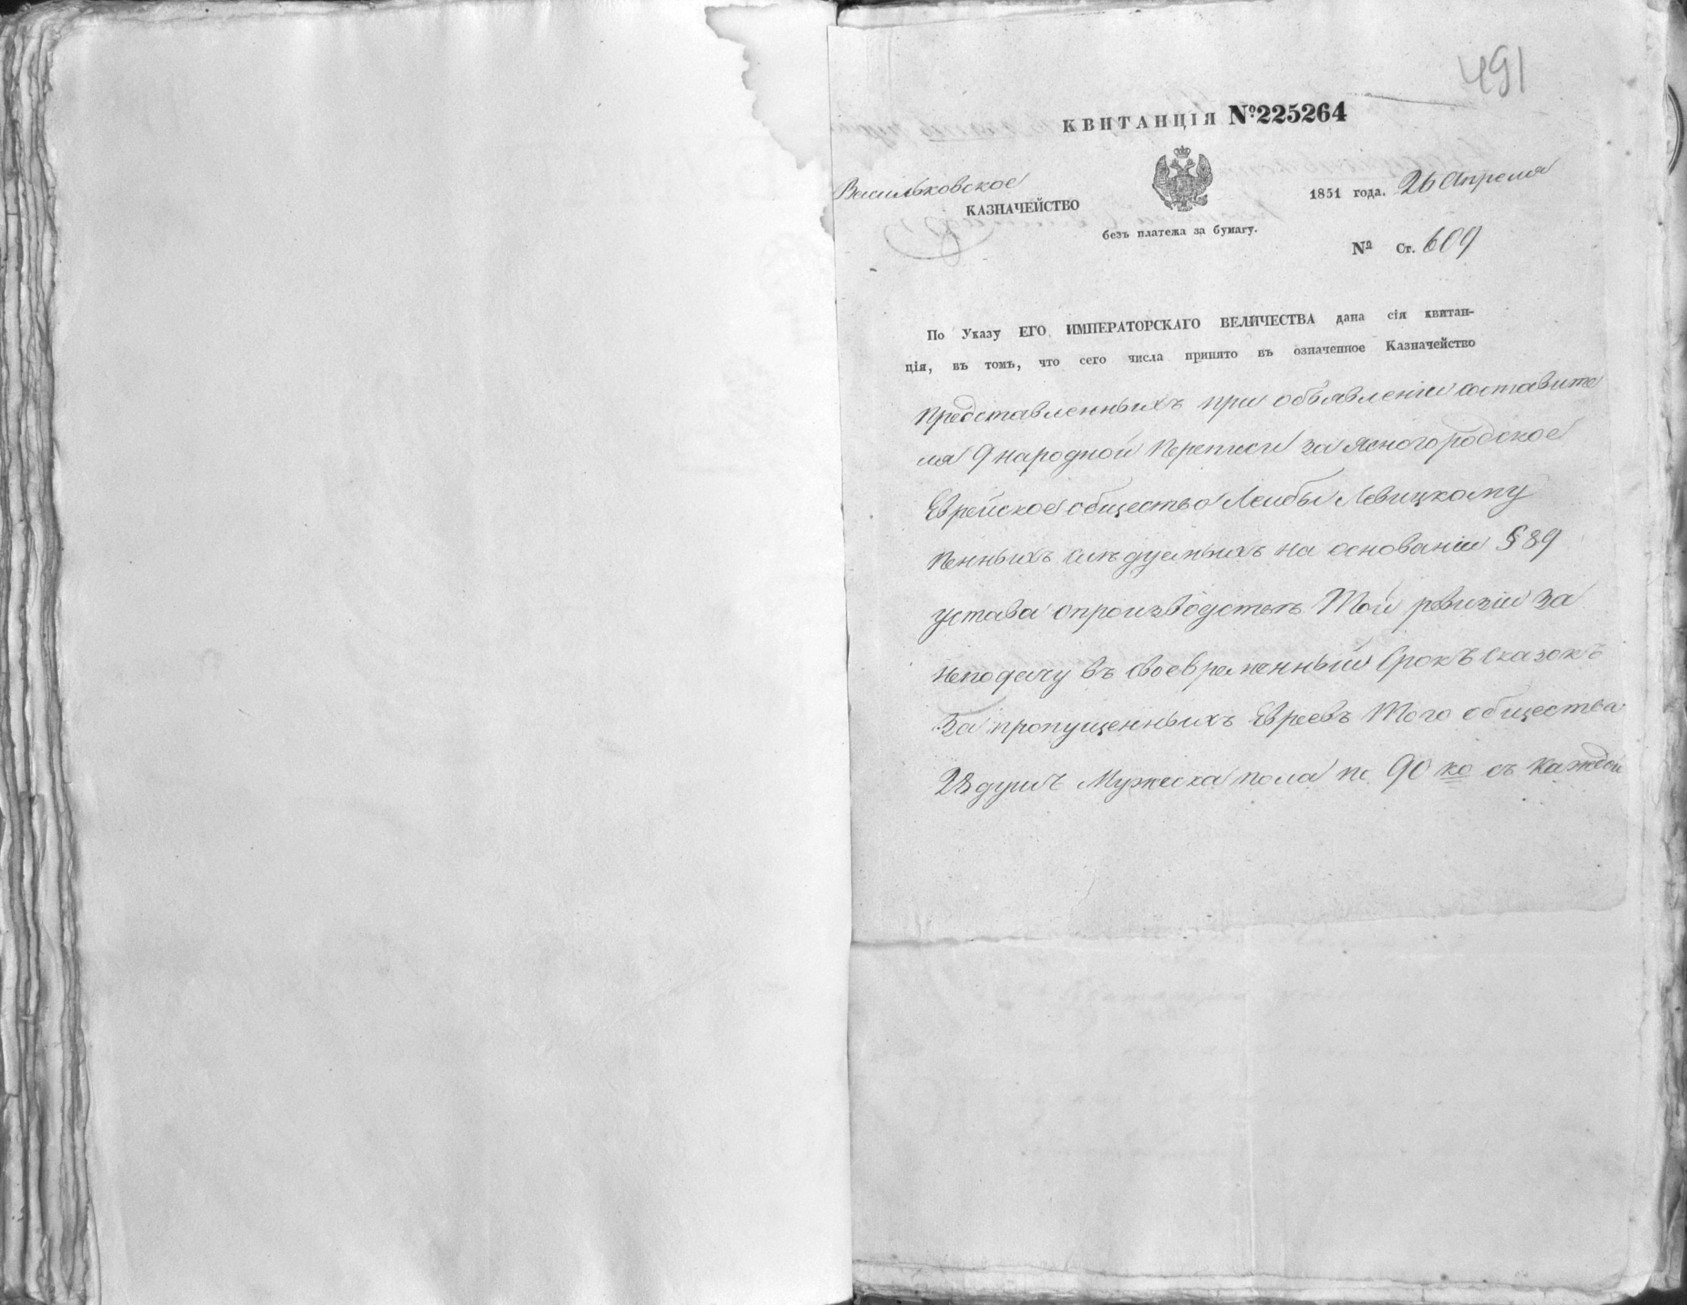 491
КВИТАНЦІЯ №225264
Васильковское
КАЗНАЧЕЙСТВО
1851 года. 26 Апреля
безъ платежа за бумагу.
№ Ст. 609
По Указу ЕГО ИМПЕРАТОРСКАГО ВЕЛИЧЕСТВА дана сія квитан-
ція, въ томъ, что сего числа принято въ означенное Казначейство
представленныхъ при объявленіи составите
ля 9 народной Переписи за Ясногородское
Еврейское общество Лейбы Левицкому
пенныхъ следуемыхъ на основаніи § 89
устава опроизводстве Той ревизіи за
неподачу въ своевременный Срокъ сказокъ
За пропущенныхъ Евреевъ Того общества
28 душъ Мужеска пола по 90 ко съ каждой